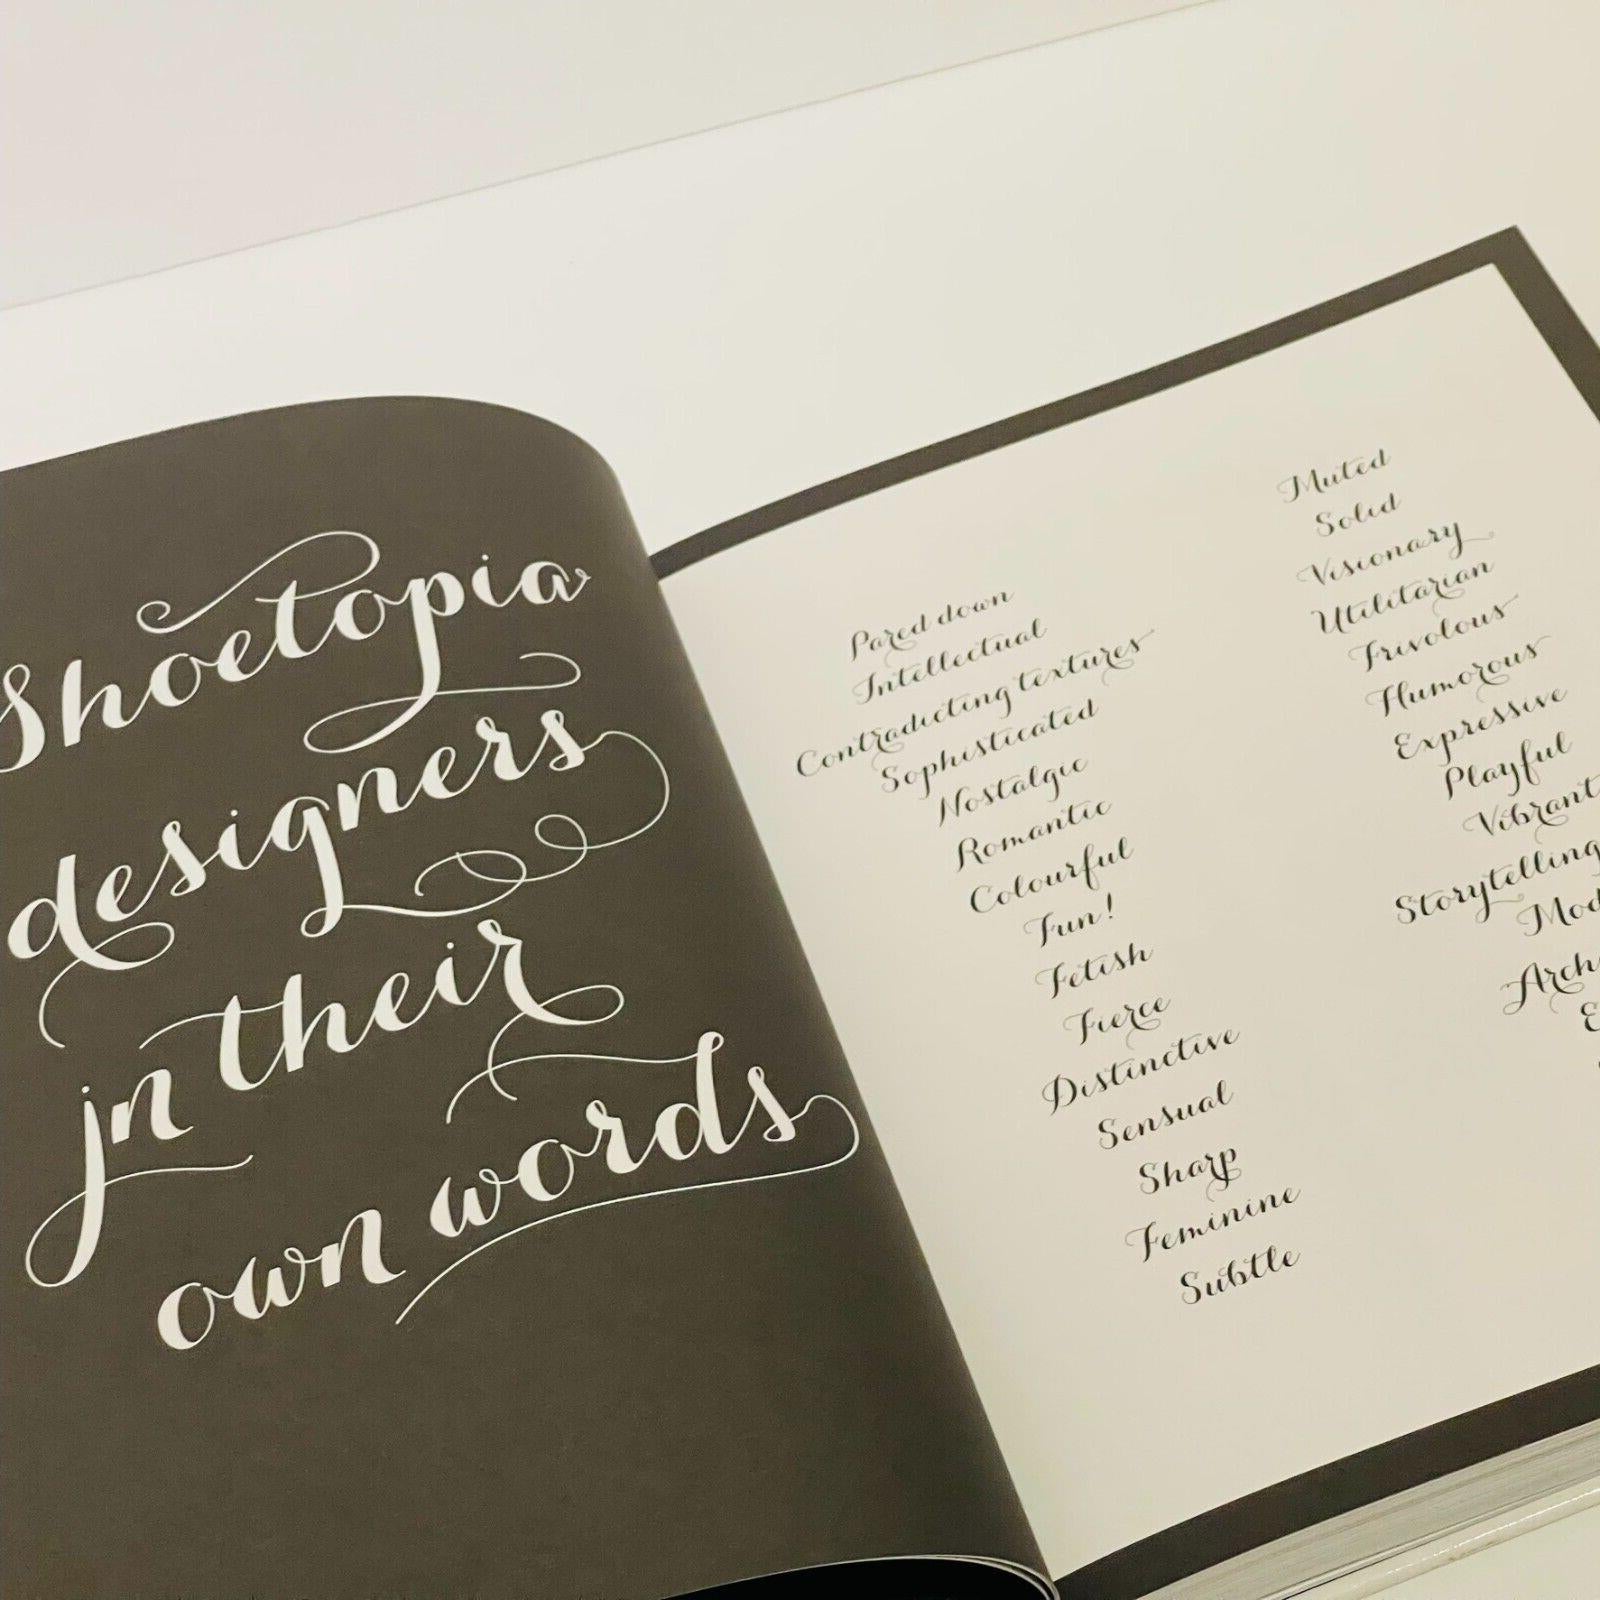 Shoetopia
designers
in their
own words
Pared down
Intellectual
Contradicting textures
Sophisticated
Nostalgic
Romantic
Colourful
Fun!
Fetish
Fierce
Distinctive
Sensual
Sharp
Feminine
Subtle
Muted
Solid
Visionary
Utilitarian
Frivolous
Humorous
Expressive
Playful
Vibrant
Storytelling